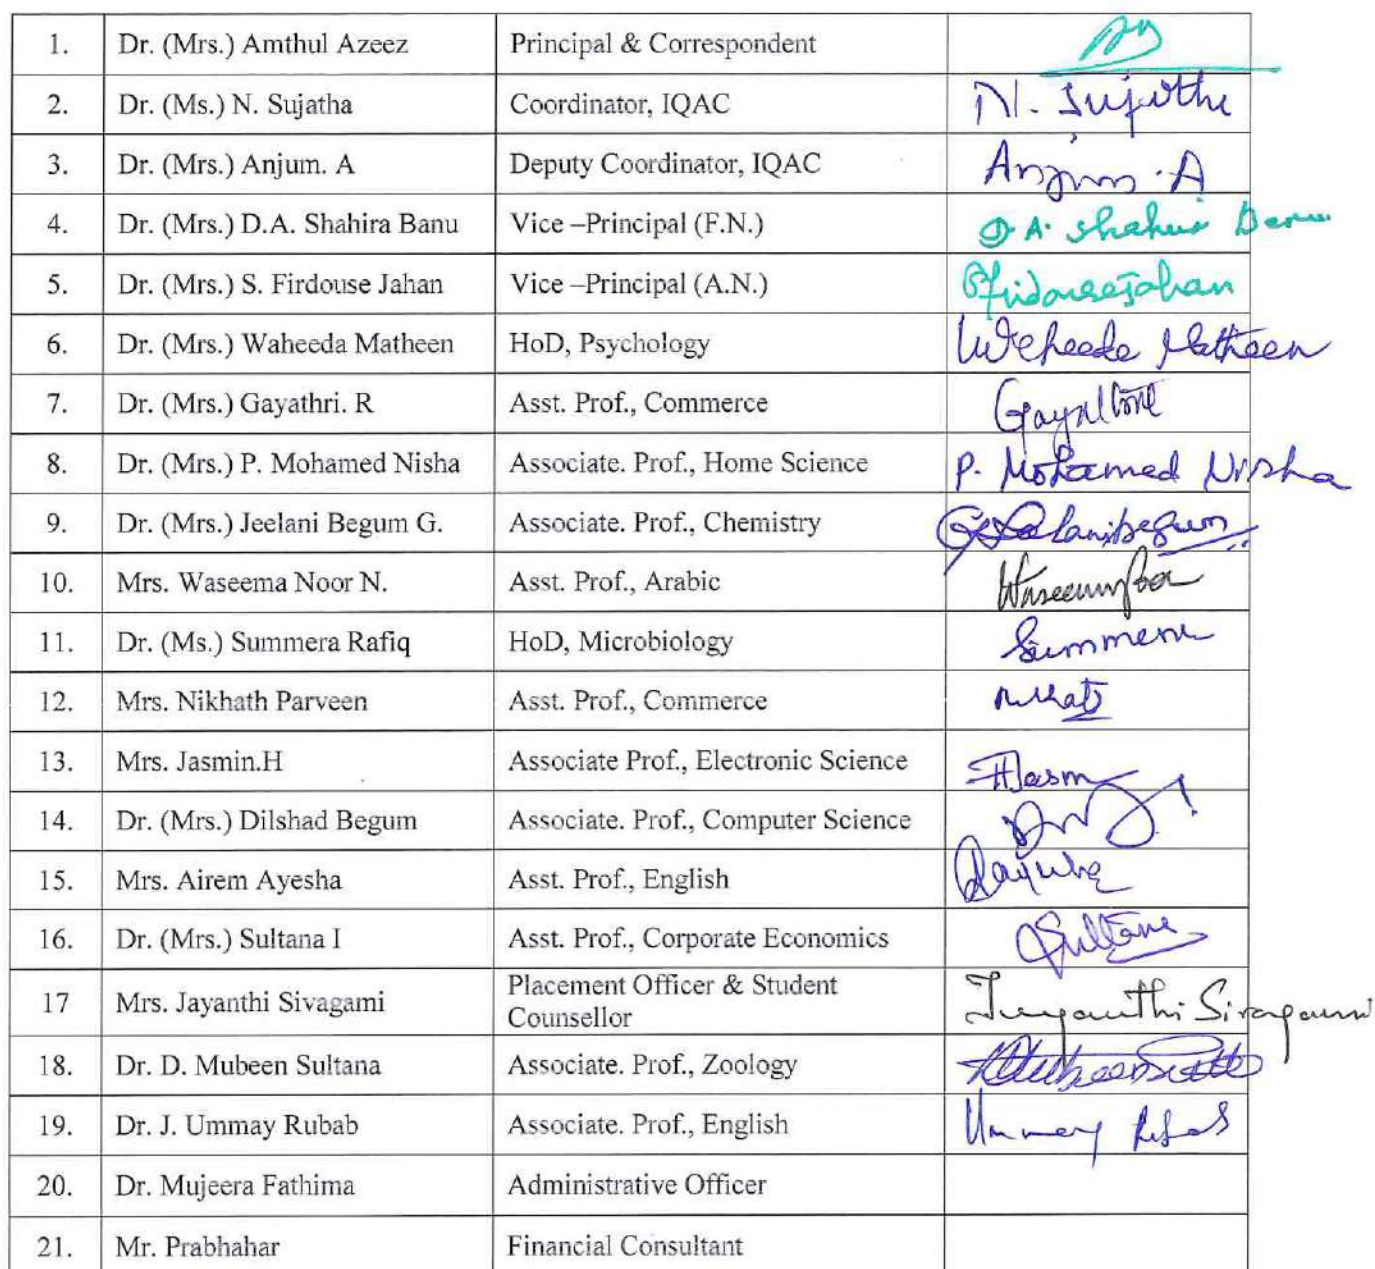 1. Dr. (Mrs.) Amthul Azeez Principal & Correspondent
2. Dr. (Ms.) N. Sujatha Coordinator, IQAC N. Sujatha
3. Dr. (Mrs.) Anjum. A Deputy Coordinator, IQAC Anjum. A
4. Dr. (Mrs.) D.A. Shahira Banu Vice –Principal (F.N.) D.A. Shahira Banu
5. Dr. (Mrs.) S. Firdouse Jahan Vice –Principal (A.N.) S Firdouse Jahan
6. Dr. (Mrs.) Waheeda Matheen HoD, Psychology Waheeda Matheen
7. Dr. (Mrs.) Gayathri. R Asst. Prof., Commerce Gayathri
8. Dr. (Mrs.) P. Mohamed Nisha Associate. Prof., Home Science P. Mohamed Nisha
9. Dr. (Mrs.) Jeelani Begum G. Associate. Prof., Chemistry G Jeelani Begum
10. Mrs. Waseema Noor N. Asst. Prof., Arabic Waseema Noor
11. Dr. (Ms.) Summera Rafiq HoD, Microbiology Summera
12. Mrs. Nikhath Parveen Asst. Prof., Commerce
13. Mrs. Jasmin.H Associate Prof., Electronic Science H Jasm
14. Dr. (Mrs.) Dilshad Begum Associate. Prof., Computer Science
15. Mrs. Airem Ayesha Asst. Prof., English
16. Dr. (Mrs.) Sultana I Asst. Prof., Corporate Economics Sultana
17 Mrs. Jayanthi Sivagami Placement Officer & Student
Counsellor Jayanthi Sivagami
18. Dr. D. Mubeen Sultana Associate. Prof., Zoology
19. Dr. J. Ummay Rubab Associate. Prof., English Ummay Rubab
20. Dr. Mujeera Fathima Administrative Officer
21. Mr. Prabhahar Financial Consultant